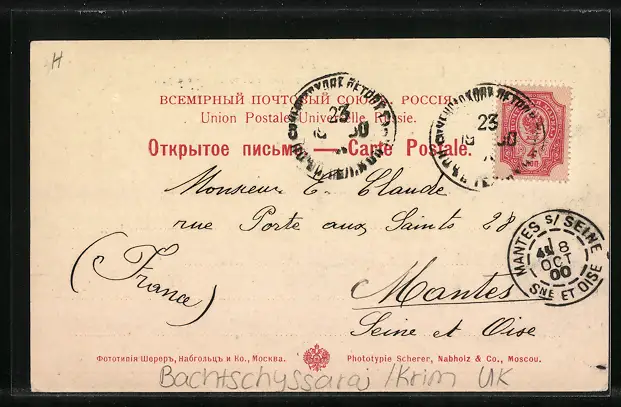 H
ВСЕМІРНЫЙ ПОЧТОВЫЙ СОЮЗЪ. РОССІЯ.
Union Postale Universelle. Russie.
Открытое письмо. — Carte Postale.
23
23
Monsieur E. Claude
rue Porte aux Saints 28
(France)
Mantes
Seine et Oise
MANTES S/ SEINE
18
OCT
00
SNE ET OISE
Фототипія Шереръ, Набгольцъ и Ко., Москва.
Phototypie Scherer, Nabholz & Co., Moscou.
Bachtschyssaraj /Krim UK